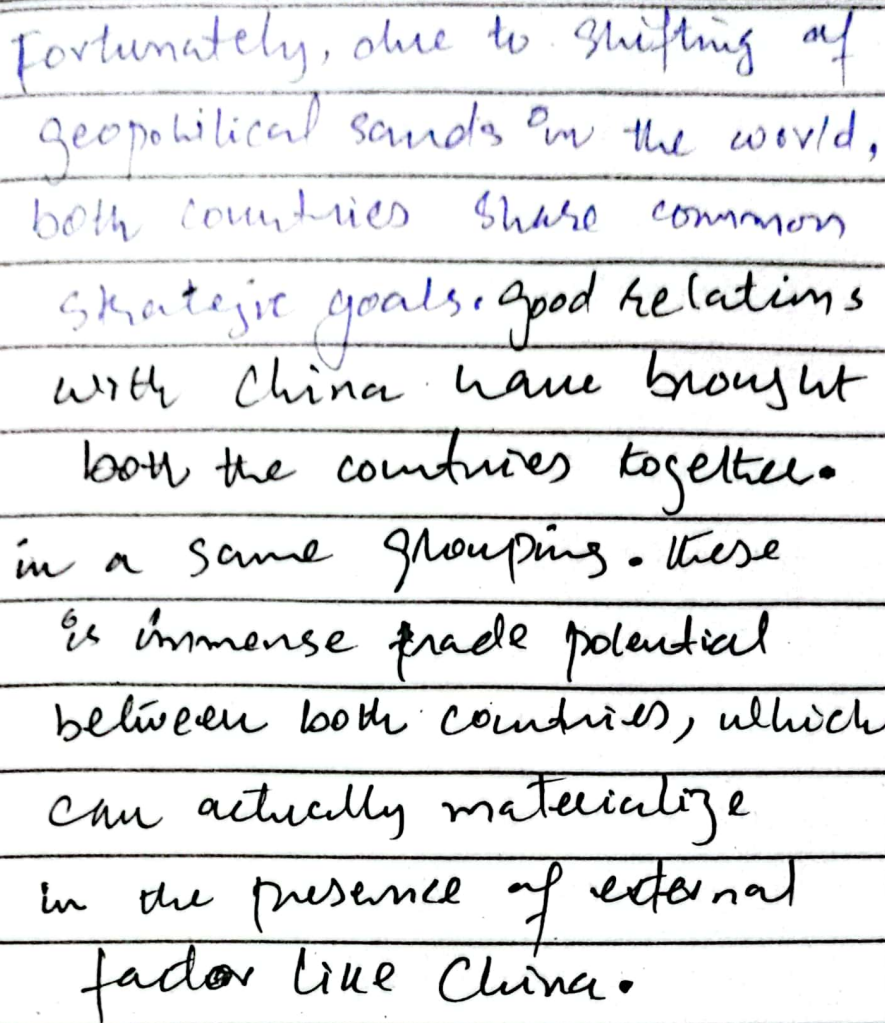 Fortunately, due to shifting of
geopolitical sands in the world,
both countries share common
strategic goals. good relations
with China have brought
both the countries together.
in a same grouping. these
is immense trade potential
between both countries, which
can actually materialize
in the presence of external
factor like China.